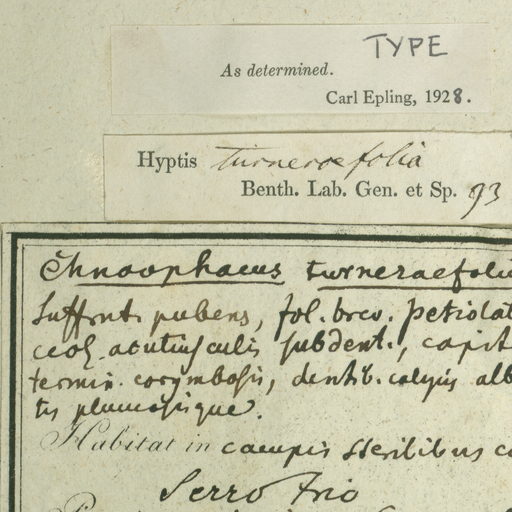 TYPE
As determined.
Carl Epling, 1928.
Hyptis turneraefolia
Benth. Lab. Gen. et Sp. 93
turneraefoli
Suffrut. pubens, fol. brev. petiolat
acutiusculis subdent., capit
termin. corymbosis, dentib. calycis alb
tis plumosisque.
Habitat in campis sterilibus
Serro Frio